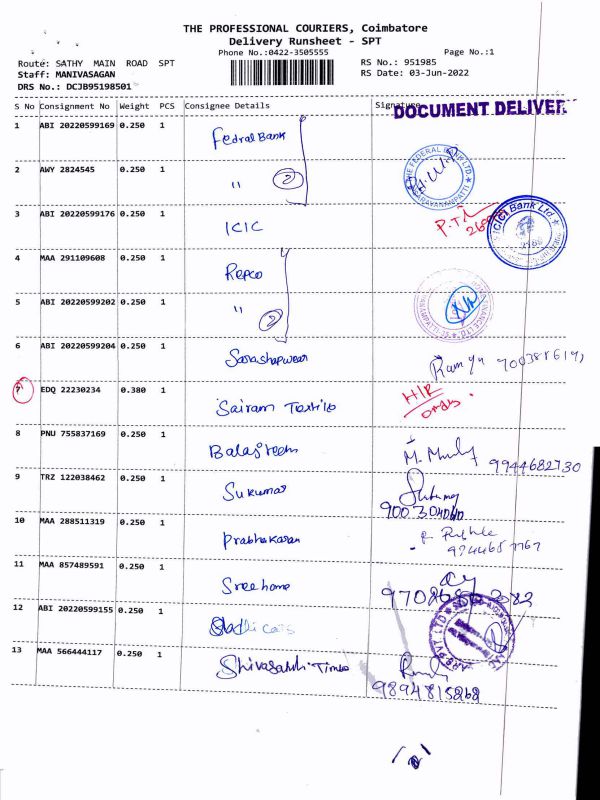 THE PROFESSIONAL COURIERS, Coimbatore
Delivery Runsheet - SPT
Phone No.:0422-3505555
Page No.:1
Route: SATHY MAIN ROAD SPT
RS No.: 951985
Staff: MANIVASAGAN
RS Date: 03-Jun-2022
DRS No.: DCJB95198501
S No Consignment No Weight PCS Consignee Details Signature
DOCUMENT DELIVER
1 ABI 20220599169 0.250 1 Fedral Bank
2 AWY 2824545 0.250 1 " 2
THE FEDERAL BANK LTD.
3 ABI 20220599176 0.250 1 ICIC
ICICI Bank Ltd.
4 MAA 291109608 0.250 1 Repco
5 ABI 20220599202 0.250 1 " 2
6 ABI 20220599204 0.250 1
Ramya
7 EDQ 22230234 0.380 1 Sairam Textile
8 PNU 755837169 0.250 1 Balasteels
9944682730
9 TRZ 122038462 0.250 1 Sukumar
10 MAA 288511319 0.250 1 Prabhakaran
11 MAA 857489591 0.250 1 Sreehome
12 ABI 20220599155 0.250 1
13 MAA 566444117 0.250 1 Shivasakthi Times
9894815262